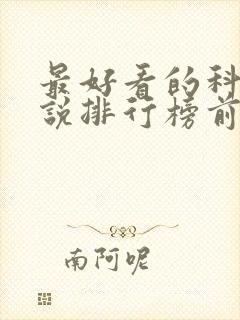 最好看的科
說排行榜前
南阿呢